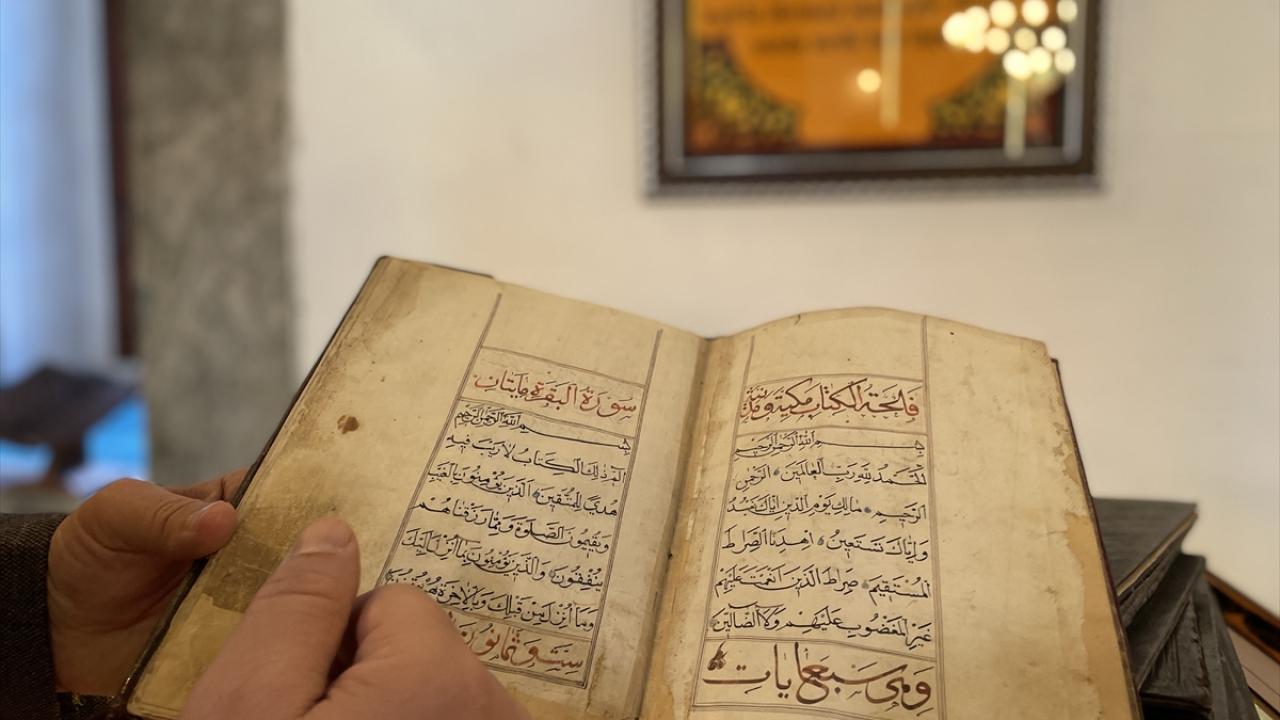 فاتحة الكتاب مكية ومدنية
بسم الله الرحمن الرحيم
الحمد لله رب العالمين الرحمن
الرحيم مالك يوم الدين اياك نعبد
واياك نستعين اهدنا الصراط
المستقيم صراط الذين انعمت عليهم
غير المغضوب عليهم ولا الضالين
وهي سبع ايات
سورة البقرة مايتان
بسم الله الرحمن الرحيم
الم ذلك الكتاب لا ريب فيه
هدى للمتقين الذين يؤمنون بالغيب
ويقيمون الصلوة ومما رزقناهم
ينفقون والذين يؤمنون بما أنزل اليك
وما أنزل من قبلك وبالاخرة هم يوقنون
ست وثمانون